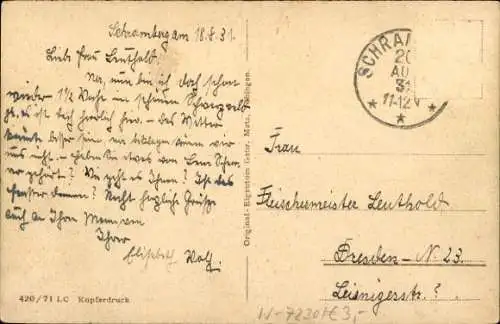 Schramberg am 18.8.31.
Liebe Frau Leuthold.
Na, nun bin ich doch schon
wieder 1½ Woche im schönen
es ist doch herrlich hier. - das Wetter
könnte besser sein wir wir
uns nicht. - Haben Sie etwas von
gehört? Wie geht es Ihnen? Ist das
Recht herzliche Grüsse
auch an Ihren Mann, von
Ihrer
Elisabeth Wolf.
420/71 LC Kupferdruck
Original-Eigentum Gebr. Metz, Tübingen.
SCHRAM
20
AU
31
11-12V
Frau
Fleischermeister Leuthold
Dresden - N. 23.
Leisnigerstr. ?
W-7230 HE 3,-